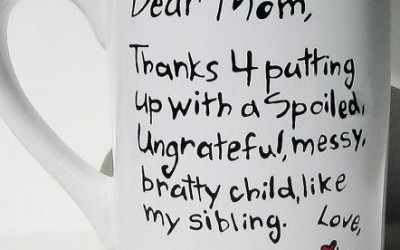 Dear Mom,
Thanks 4 putting
up with a Spoiled,
Ungrateful, messy,
bratty child, like
my sibling. Love,